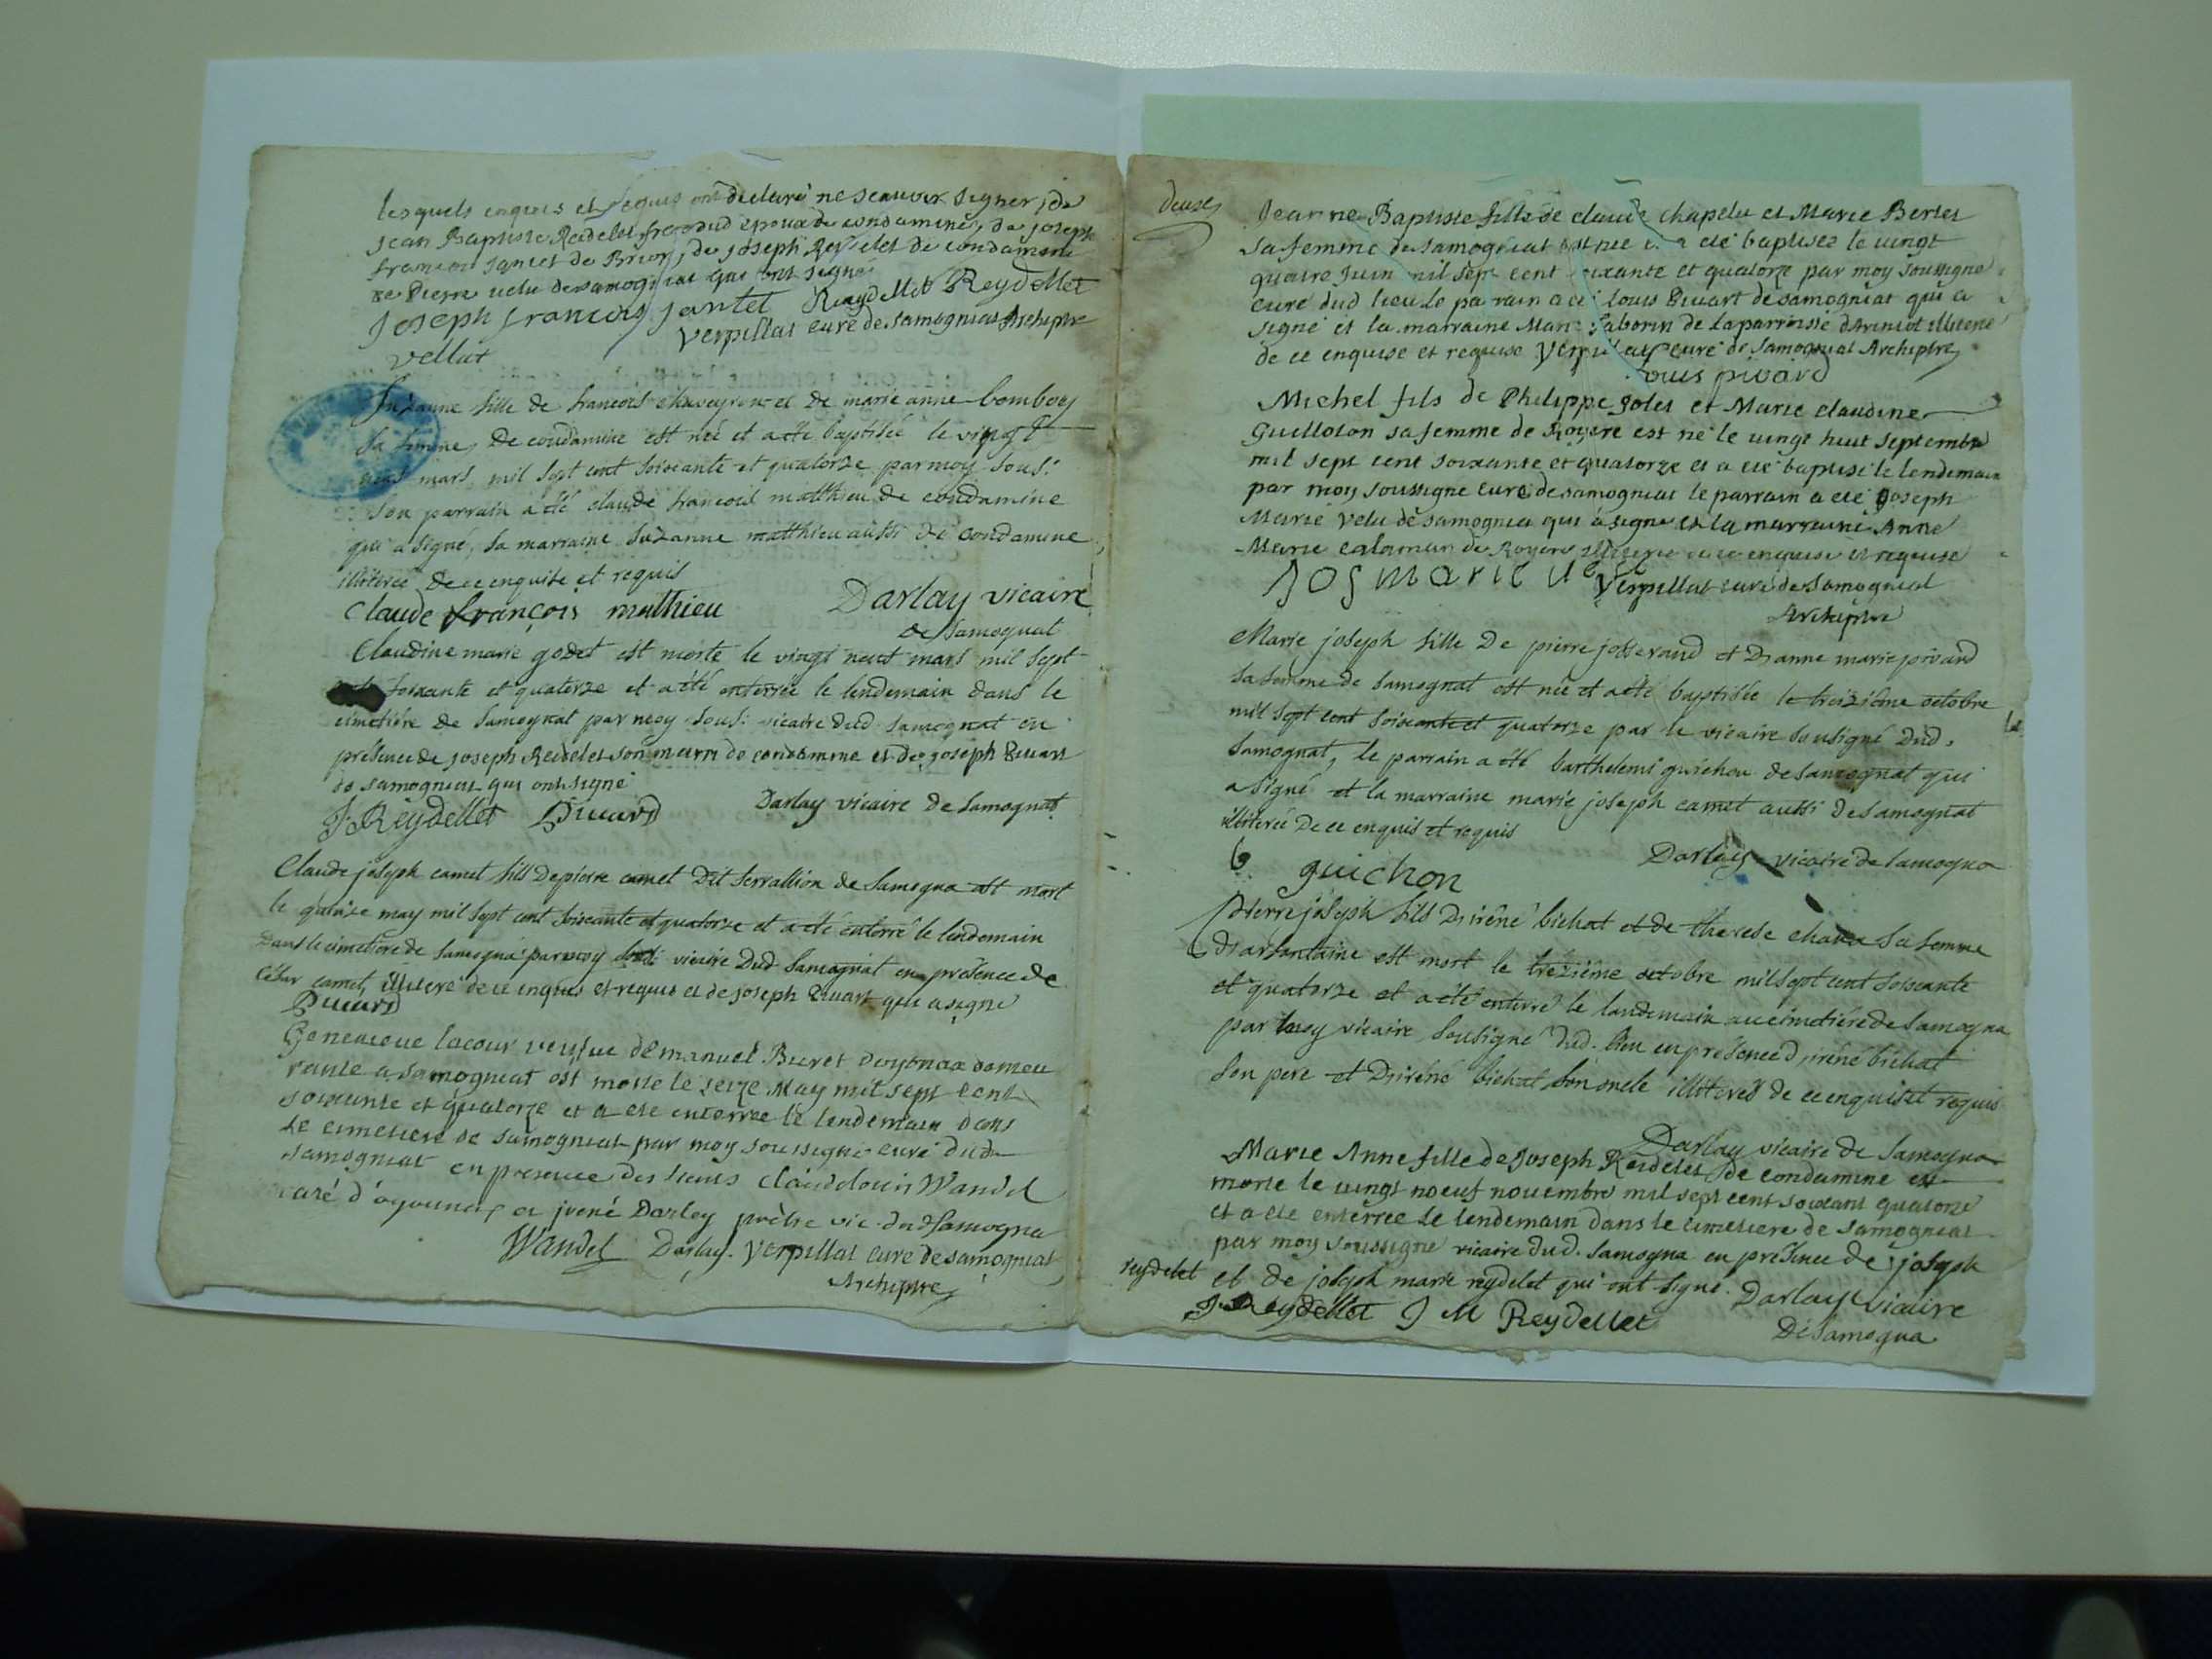 lesquels enquis et requis ont declaré ne scauoir signer, de
jean Baptiste Reidelet frere dud epoux de condamine, de joseph
francois jantet de Brion, de joseph Reidelet de condamine
et Pierre uelu de samogniat qui ont signé
joseph francois jantet Reydellet Reydellet
vellut verpillat curé de samogniat Archiptre
Suzanne fille de francois chaveyron et de marie anne bomboy
sa femme de condamine est née et a été baptisée le vingt
mars mil sept cent soixante et quatorze par moy sous:
son parrain a été claude francois matthieu de condamine
qui a signé, sa marraine suzanne matthieu aussi de condamine
illiterée de ce enquise et requis
Claude françois mathieu Darlay vicaire
de Samognat
Claudine marie godet est morte le vingt neuf mars mil sept
soixante et quatorze et a été enterrée le lendemain dans le
cimetiére de Samognat par moy sous: vicaire dud samognat en
présence de joseph Reidelet son marri de condamine et de joseph Piuart
de samogniat qui ont signé
J. Reydellet Piuard Darlay vicaire de Samognat
Claude joseph camet fils de pierre camet dit serrallion de Samogna est mort
le quinze may mil sept cent soixante et quatorze et a été enterré le lendemain
dans le cimetiere de samogna par moy sous: vicaire dud Samogniat en présence de
César camet, illiteré de ce enquis et requis et de joseph Piuart qui a signé
Piuard
Geneuieue lacour veufue d'Emanuel Buret d'oyonax demeu
rante a samogniat est morte le seize May mil sept cent
soixante et quatorze et a eté enterrée le lendemain dans
le cimetiere de samogniat par moy soussigné curé dud
samogniat en presence des sieurs Claude louis Wandel
curé d'oyonnax et irené Darlay prêtre vic. dud Samogna
Wandel Darlay. verpillat curé de samogniat
Archiptre
deuse
Jeanne Baptiste fille de claude chapelu et Marie Bertet
sa femme de samogniat est née et a eté baptisee le uingt
quatre Juin mil sept cent soixante et quatorze par moy soussigné
curé dud lieu le parrain a eté louis Piuart de samogniat qui a
signé et la marraine Marie saborin de la parroisse illiteré
de ce enquise et requise verpillat curé de Samogniat Archiptre
Louis pivard
Michel fils de Philippe Jolet et Marie claudine
Guilloton sa femme de Royere est né le uingt huit septembre
mil sept cent soixante et quatorze et a eté baptisé le lendemain
par moy soussigné curé de samogniat le parrain a eté joseph
Marie velu de samognia qui a signé et la marraine Anne
Marie calamun de Royere illiterée de ce enquise et requise
Jos Marie verpillat curé de Samogniat
Archiptre
Marie joseph fille de pierre josserand et d'anne marie pivard
sa femme de samognat est née et a été baptisée le treiziéme octobre
mil sept cent soixante et quatorze par le vicaire sousigné dud.
Samognat, le parrain a été barthelemi guichon de samognat qui
a signé et la marraine marie joseph camet aussi de samognat
illiterée de ce enquis et requis
b. guichon Darlay vicaire de samogna
Pierre joseph fils d'irêné bichat et de thérese sa femme
est mort le treziéme octobre mil sept cent soixante
et quatorze et a été enterré le landemain au cimetiére de Samogna
par moy vicaire sousigné dud. lieu en présence d'irêné bichat
son pere et d'irêné bichat son oncle illiterés de ce enquis et requis
Darlay vicaire de Samogna
Marie Anne fille de Joseph Reidelet de condamine est
morte le uingt noeuf nouembre mil sept cent soixante quatorze
et a eté enterrée le lendemain dans le cimetiere de samogniat
par moy soussigné vicaire dud. samogna en présence de joseph
reydelet et de joseph marie reydelet qui ont signé. Darlay vicaire
J. Reydellet J M Reydellet De Samogna